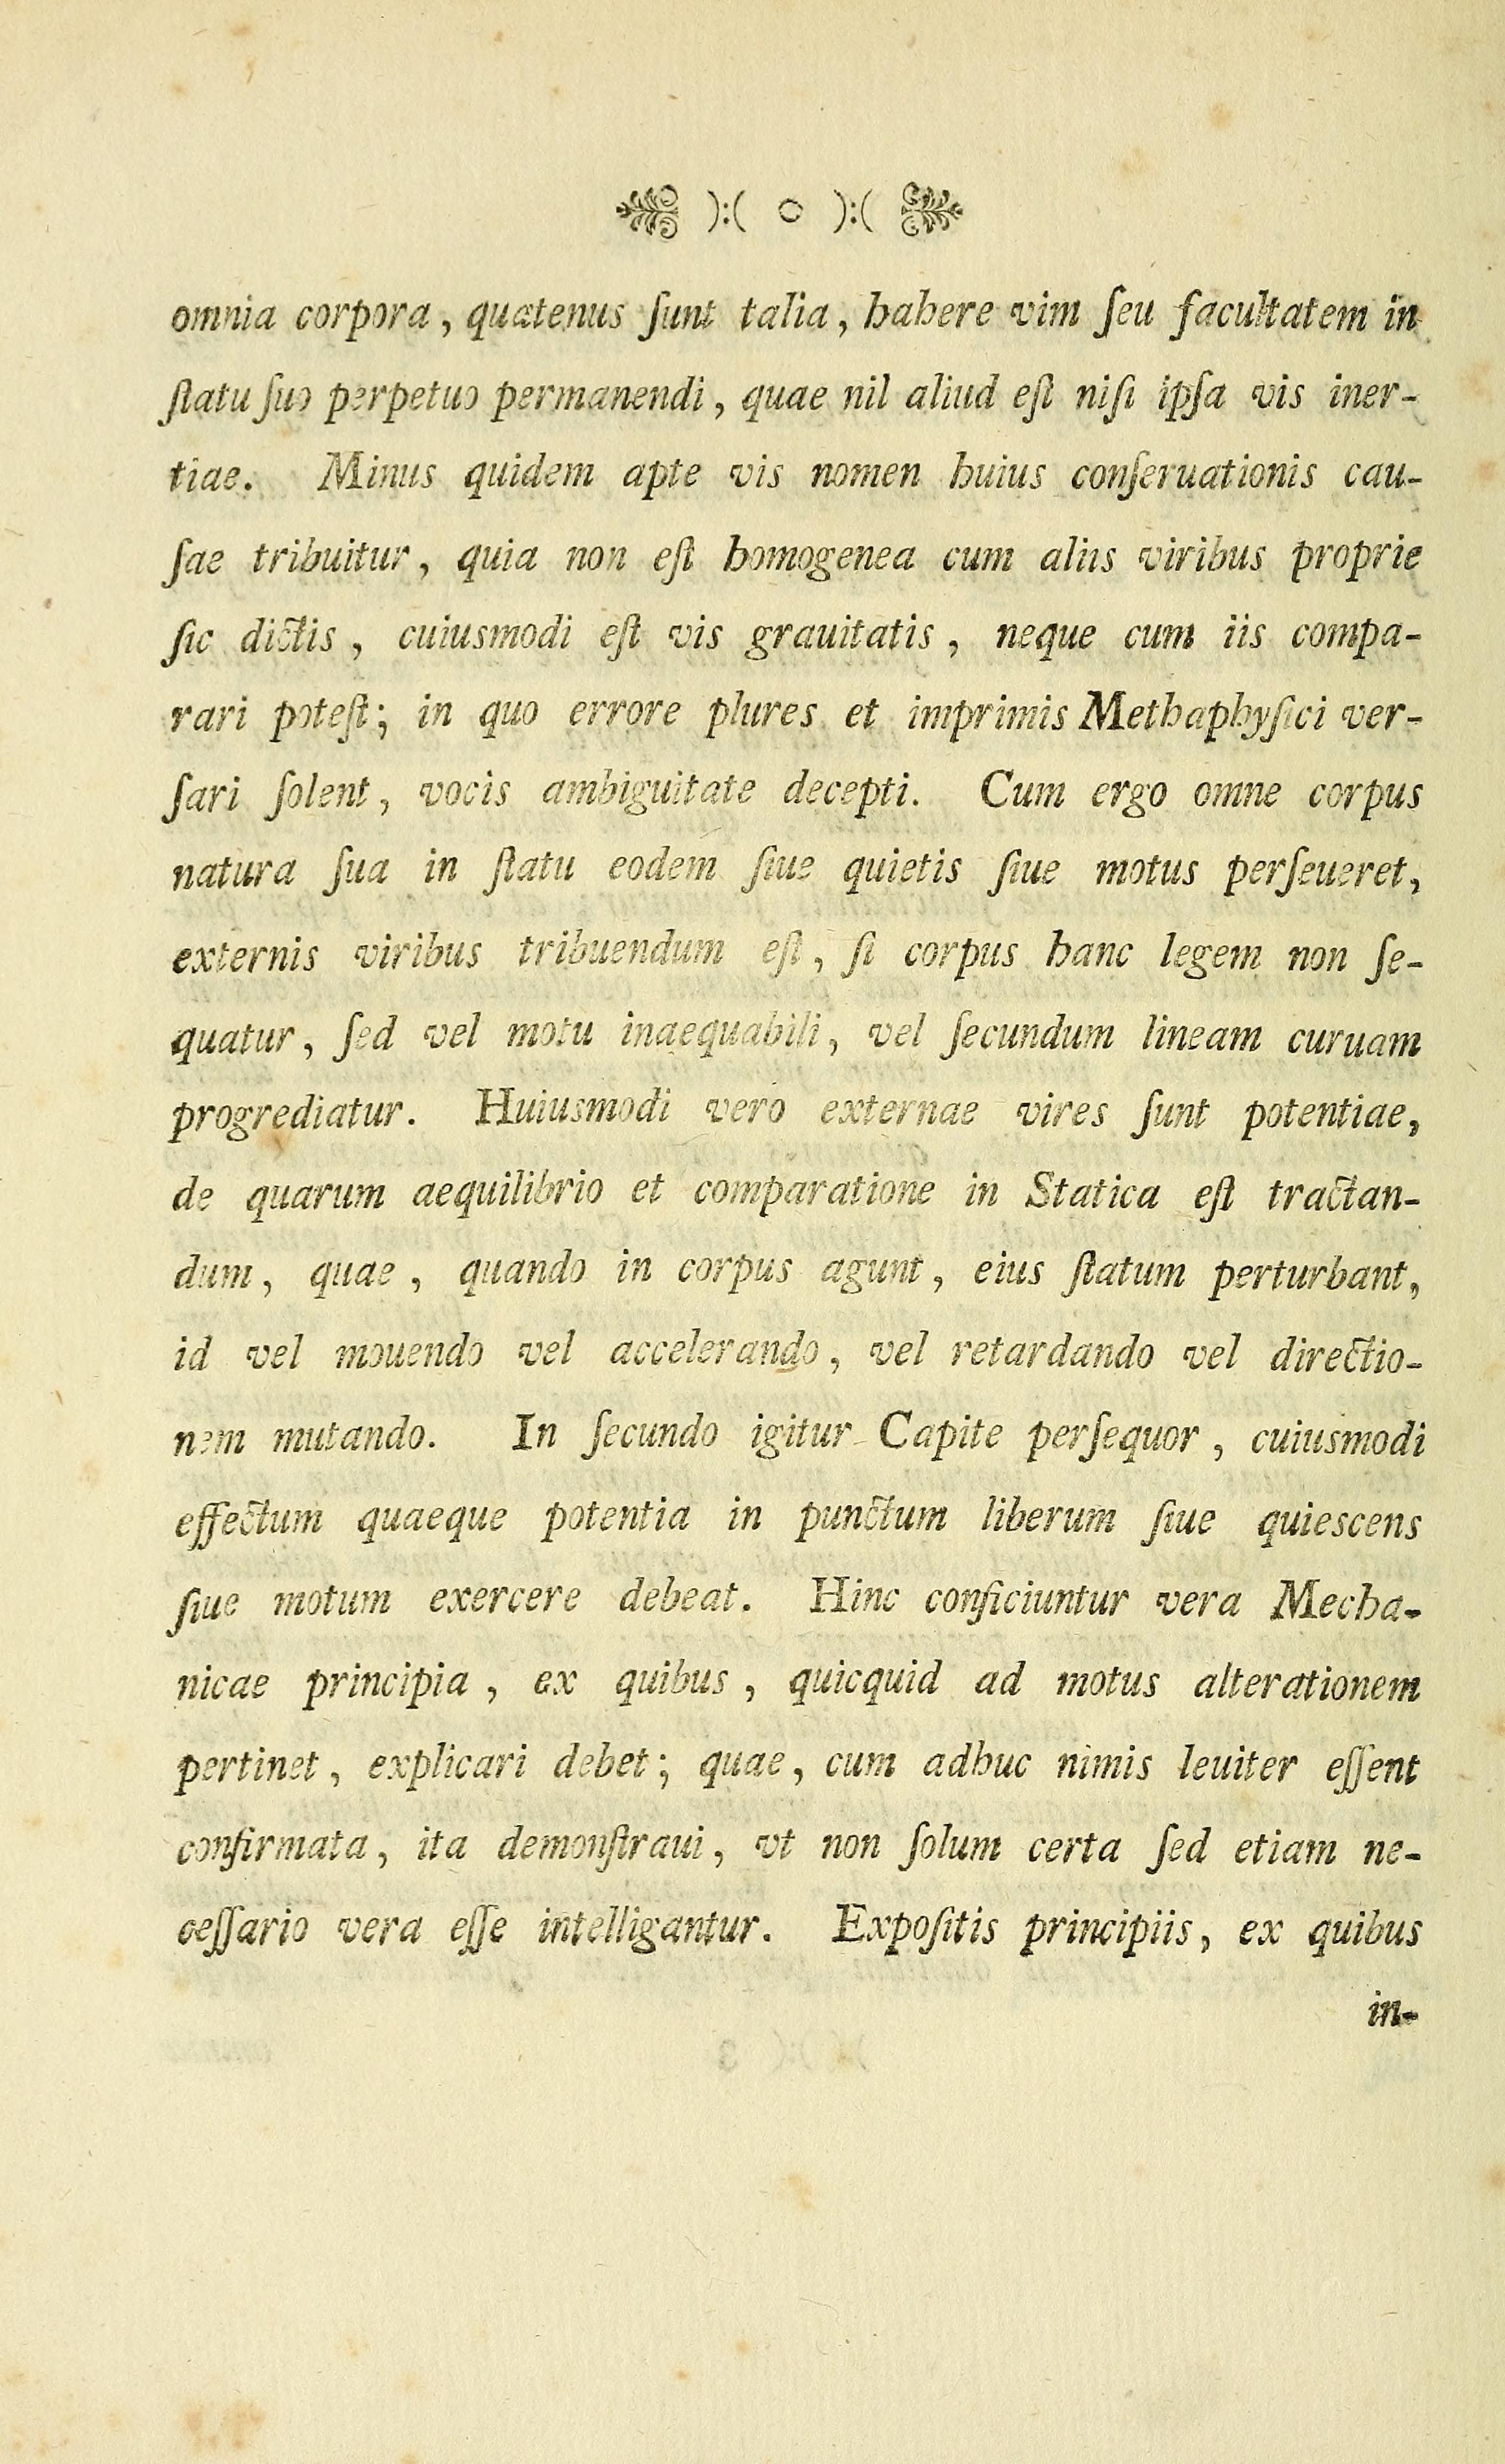 ):( o ):(
omnia corpora, quatenus ſunt talia, habere vim ſeu facultatem in
ſtatu ſuo perpetuo permanendi, quae nil aliud eſt niſi ipſa vis iner-
tiae. Minus quidem apte vis nomen huius conſeruationis cau-
ſae tribuitur, quia non eſt homogenea cum aliis viribus proprie
ſic dictis, cuiusmodi eſt vis grauitatis, neque cum iis compa-
rari poteſt; in quo errore plures et imprimis Methaphyſici ver-
ſari ſolent, vocis ambiguitate decepti. Cum ergo omne corpus
natura ſua in ſtatu eodem ſiue quietis ſiue motus perſeueret,
externis viribus tribuendum eſt, ſi corpus hanc legem non ſe-
quatur, ſed vel motu inaequabili, vel ſecundum lineam curuam
progrediatur. Huiusmodi vero externae vires ſunt potentiae,
de quarum aequilibrio et comparatione in Statica eſt tractan-
dum, quae, quando in corpus agunt, eius ſtatum perturbant,
id vel mouendo vel accelerando, vel retardando vel directio-
nem mutando. In ſecundo igitur Capite perſequor, cuiusmodi
effectum quaeque potentia in punctum liberum ſiue quiescens
ſiue motum exercere debeat. Hinc conficiuntur vera Mecha-
nicae principia, ex quibus, quicquid ad motus alterationem
pertinet, explicari debet; quae, cum adhuc nimis leuiter eſſent
confirmata, ita demonſtraui, vt non ſolum certa ſed etiam ne-
ceſſario vera eſſe intelligantur. Expoſitis principiis, ex quibus
in-